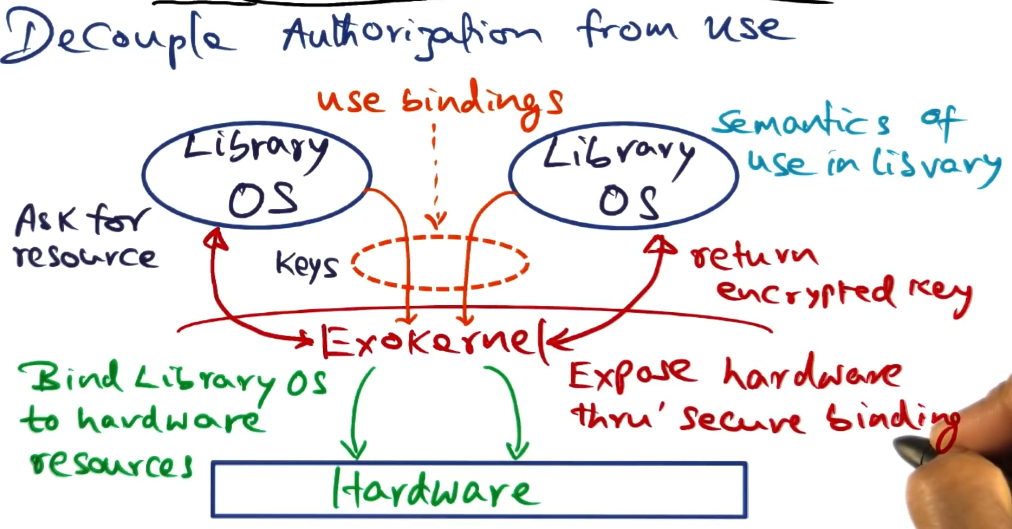 Decouple Authorization from use
use bindings
Library
OS
Library
OS
semantics of
use in Library
Ask for
resource
Keys
return
encrypted key
Exokernel
Bind Library OS
to hardware
resources
Expose hardware
thru' secure binding
Hardware